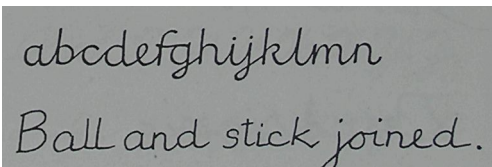 abcdefghijklmn
Ball and stick joined.